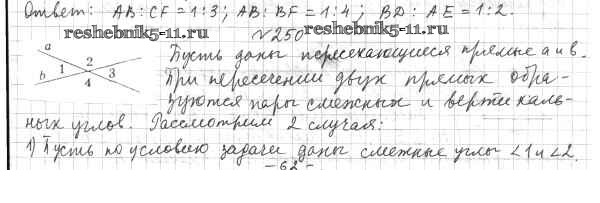 Ответ: AB:CF=1:3; AB:BF=1:4; BD:AE=1:2.
reshebnik5-11.ru
№250
a
b 1 2 3
4
Пусть даны пересекающиеся прямые a и b.
При пересечении двух прямых обра-
зуются пары смежных и вертикаль-
ных углов. Рассмотрим 2 случая:
reshebnik5-11.ru
1) Пусть по условию задачи даны смежные углы ∠1 и ∠2.
-62-